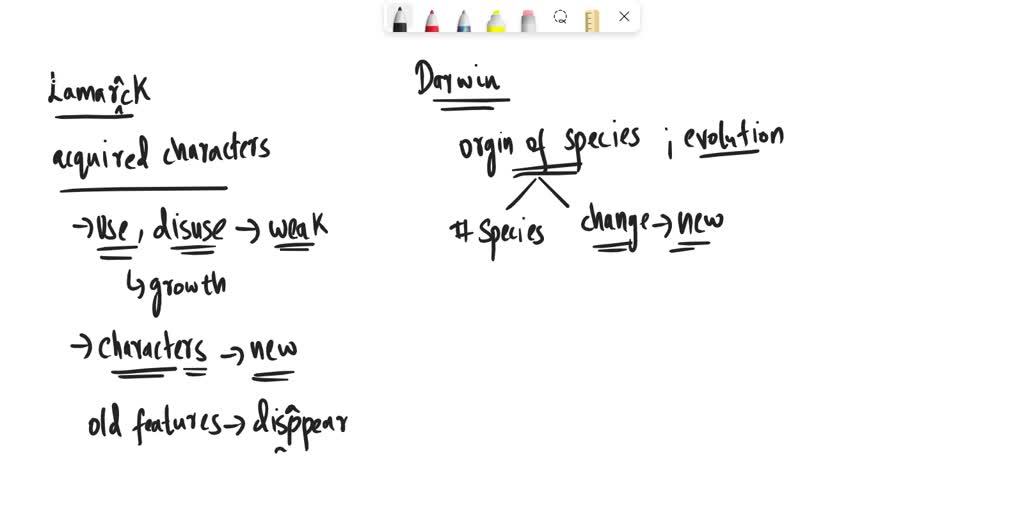 Lamarck
acquired characters
→ use, disuse → weak
↳ growth
→ characters → new
old features → disppear
Darwin
orgin of species ; evolution
# species change → new